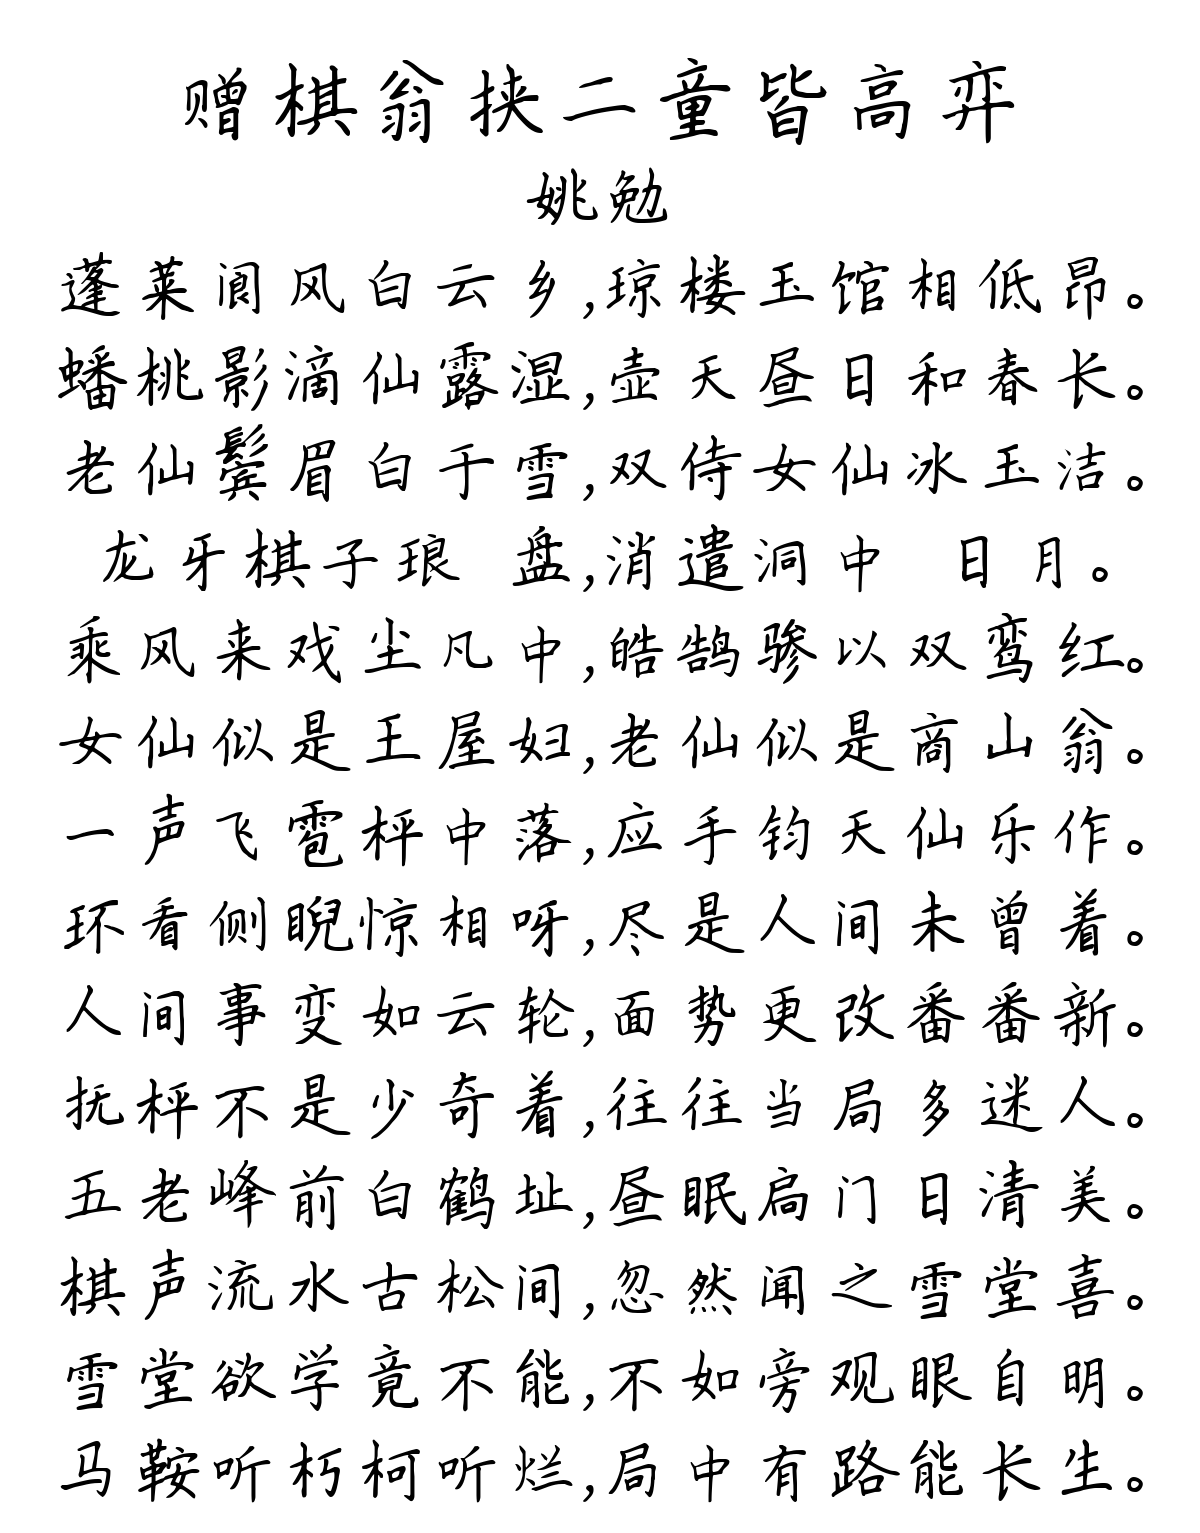 赠棋翁挟二童皆高弈
姚勉
蓬莱阆风白云乡,琼楼玉馆相低昂。
蟠桃影滴仙露湿,壶天昼日和春长。
老仙鬓眉白于雪,双侍女仙冰玉洁。
龙牙棋子琅 盘,消遣洞中 日月。
乘风来戏尘凡中,皓鹄骖以双鸾红。
女仙似是王屋妇,老仙似是商山翁。
一声飞雹枰中落,应手钧天仙乐作。
环看侧睨惊相呀,尽是人间未曾着。
人间事变如云轮,面势更改番番新。
抚枰不是少奇着,往往当局多迷人。
五老峰前白鹤址,昼眠扃门日清美。
棋声流水古松间,忽然闻之雪堂喜。
雪堂欲学竟不能,不如旁观眼自明。
马鞍听朽柯听烂,局中有路能长生。